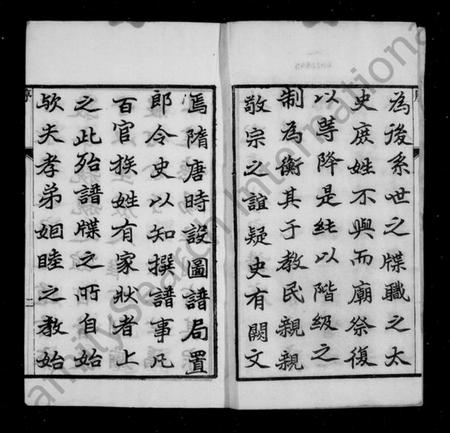 為後系世之牒職之太
史庶姓不與而廟祭復
以等降是純以階級之
制為衡其于教民親親
敬宗之誼疑史有闕文
焉隋唐時設圖譜局置
郎令史以知撰譜事凡
百官族姓有家狀者上
之此殆譜牒之所自始
歟夫孝弟姻睦之教始